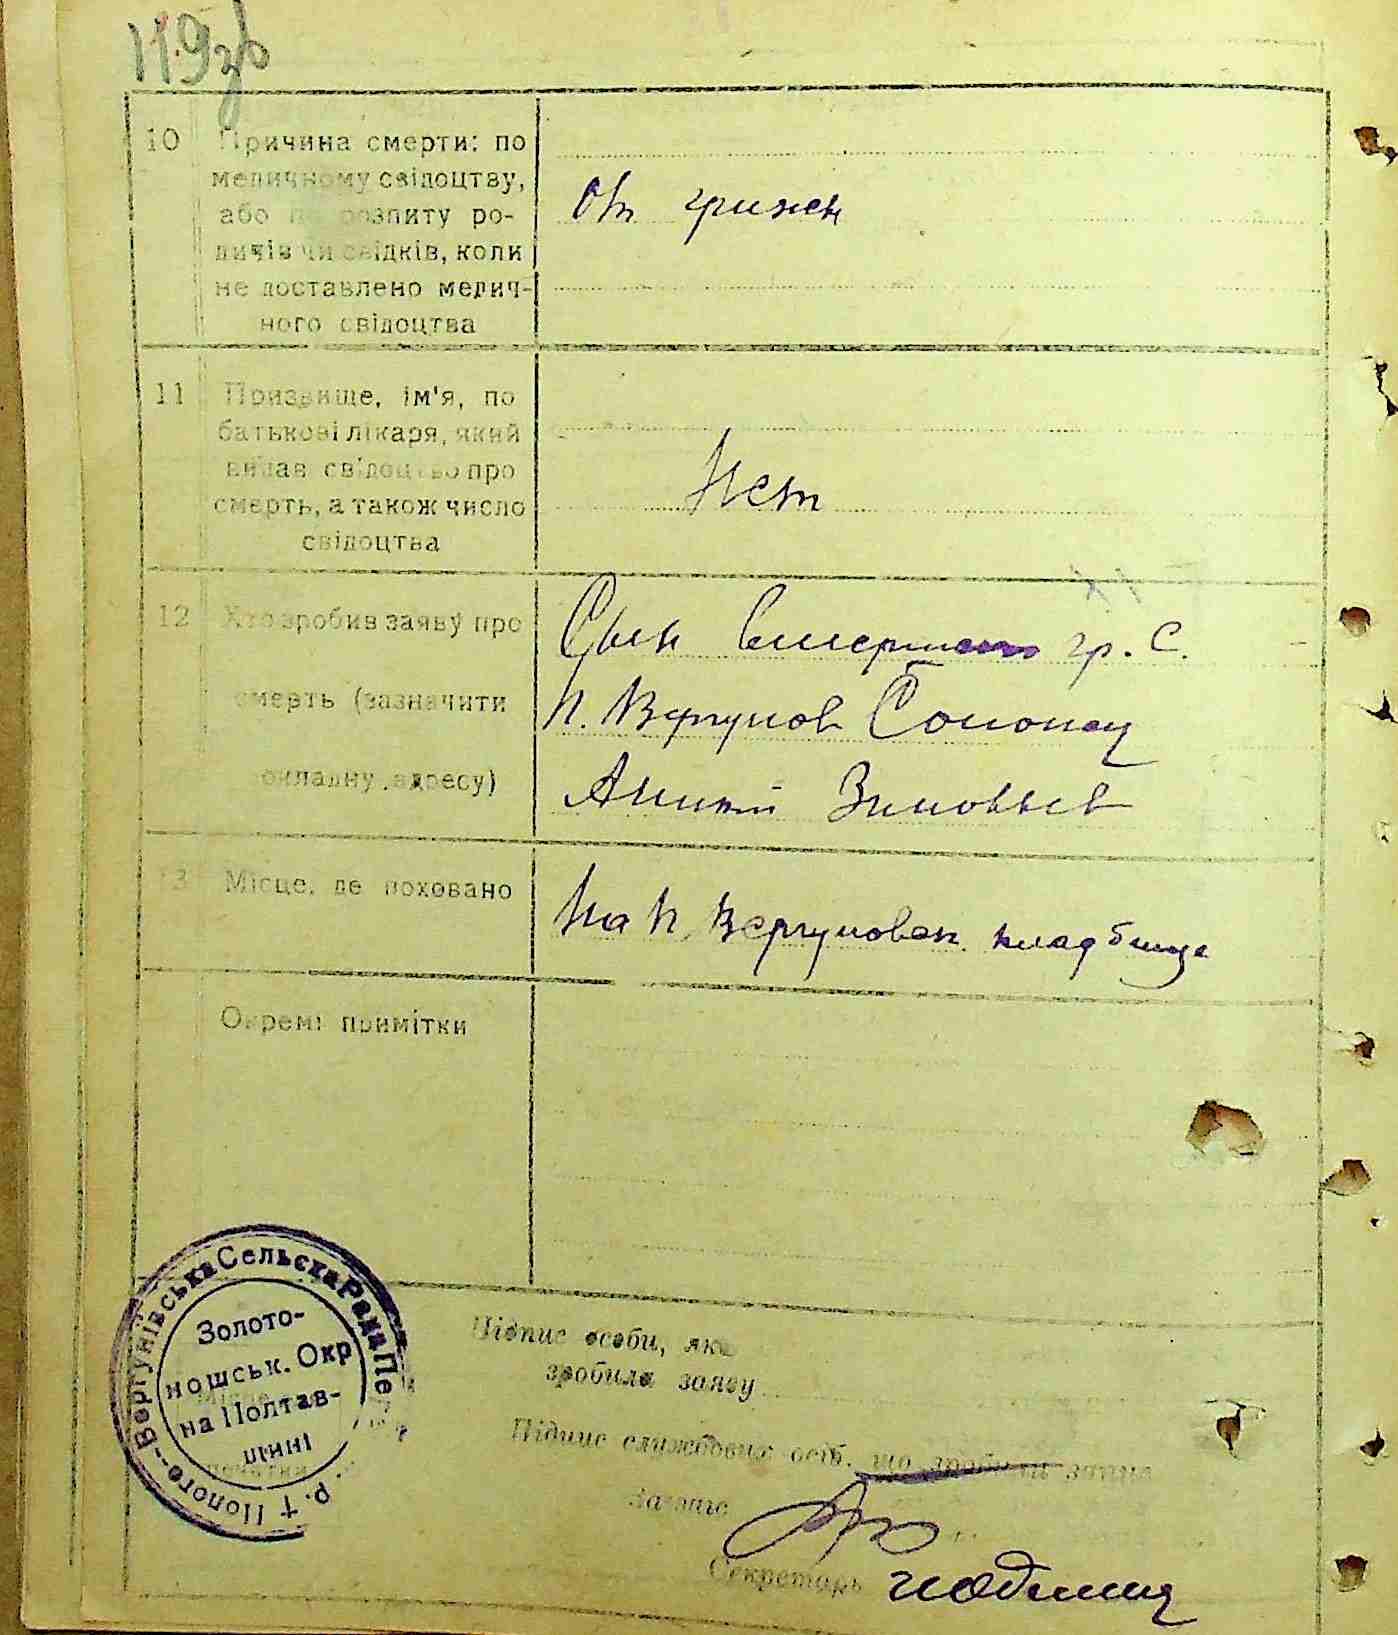 119зв
10 Причина смерти: по
медичному свідоцтву,
або по розпиту ро-
дичів чи свідків, коли
не доставлено медич-
ного свідоцтва
От грижи
11 Призвище, ім'я, по
батькові лікаря, який
видав свідоцтво про
смерть, а також число
свідоцтва
Нет
12 Хто зробив заяву про
смерть (зазначити
докладну адресу)
Сын гр. с.
П. Вергунов
Зиновьев
13 Місце, де поховано
На П. Вергуновск. кладбище
Окремі примітки
Підпис особи, яка
зробила заяву
Підпис службових осіб, що зробили запис
Секретарь
Пологo-Вергунівська Сельска Рада Пе
р.
Золото-
ношськ. Окр
на Полтав-
щині